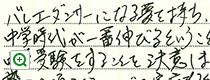 バレエダンサーになる夢を持ち、
中学時代が一番伸びるというこ
受験をすることを決意は